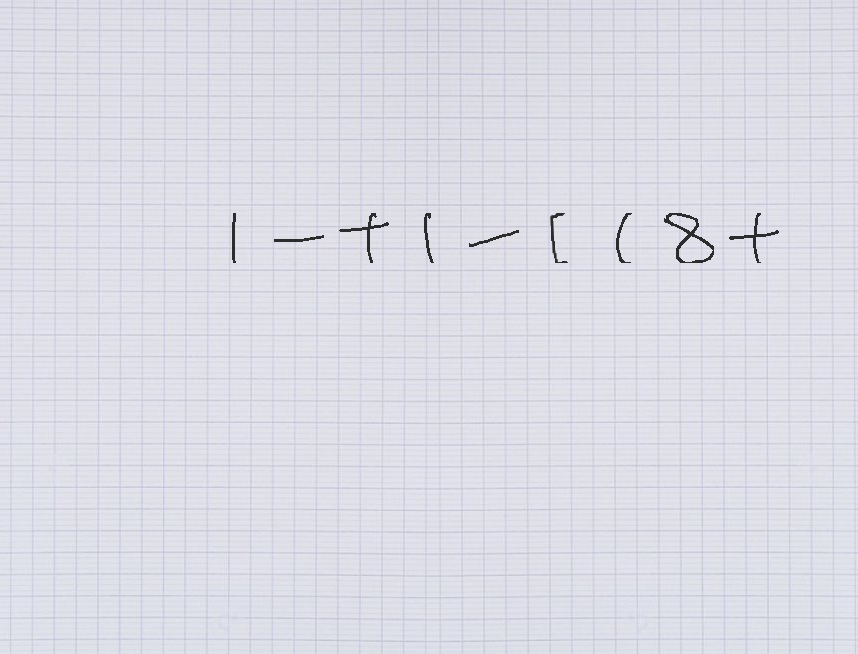 1 - + 1 - [ ( 8 +